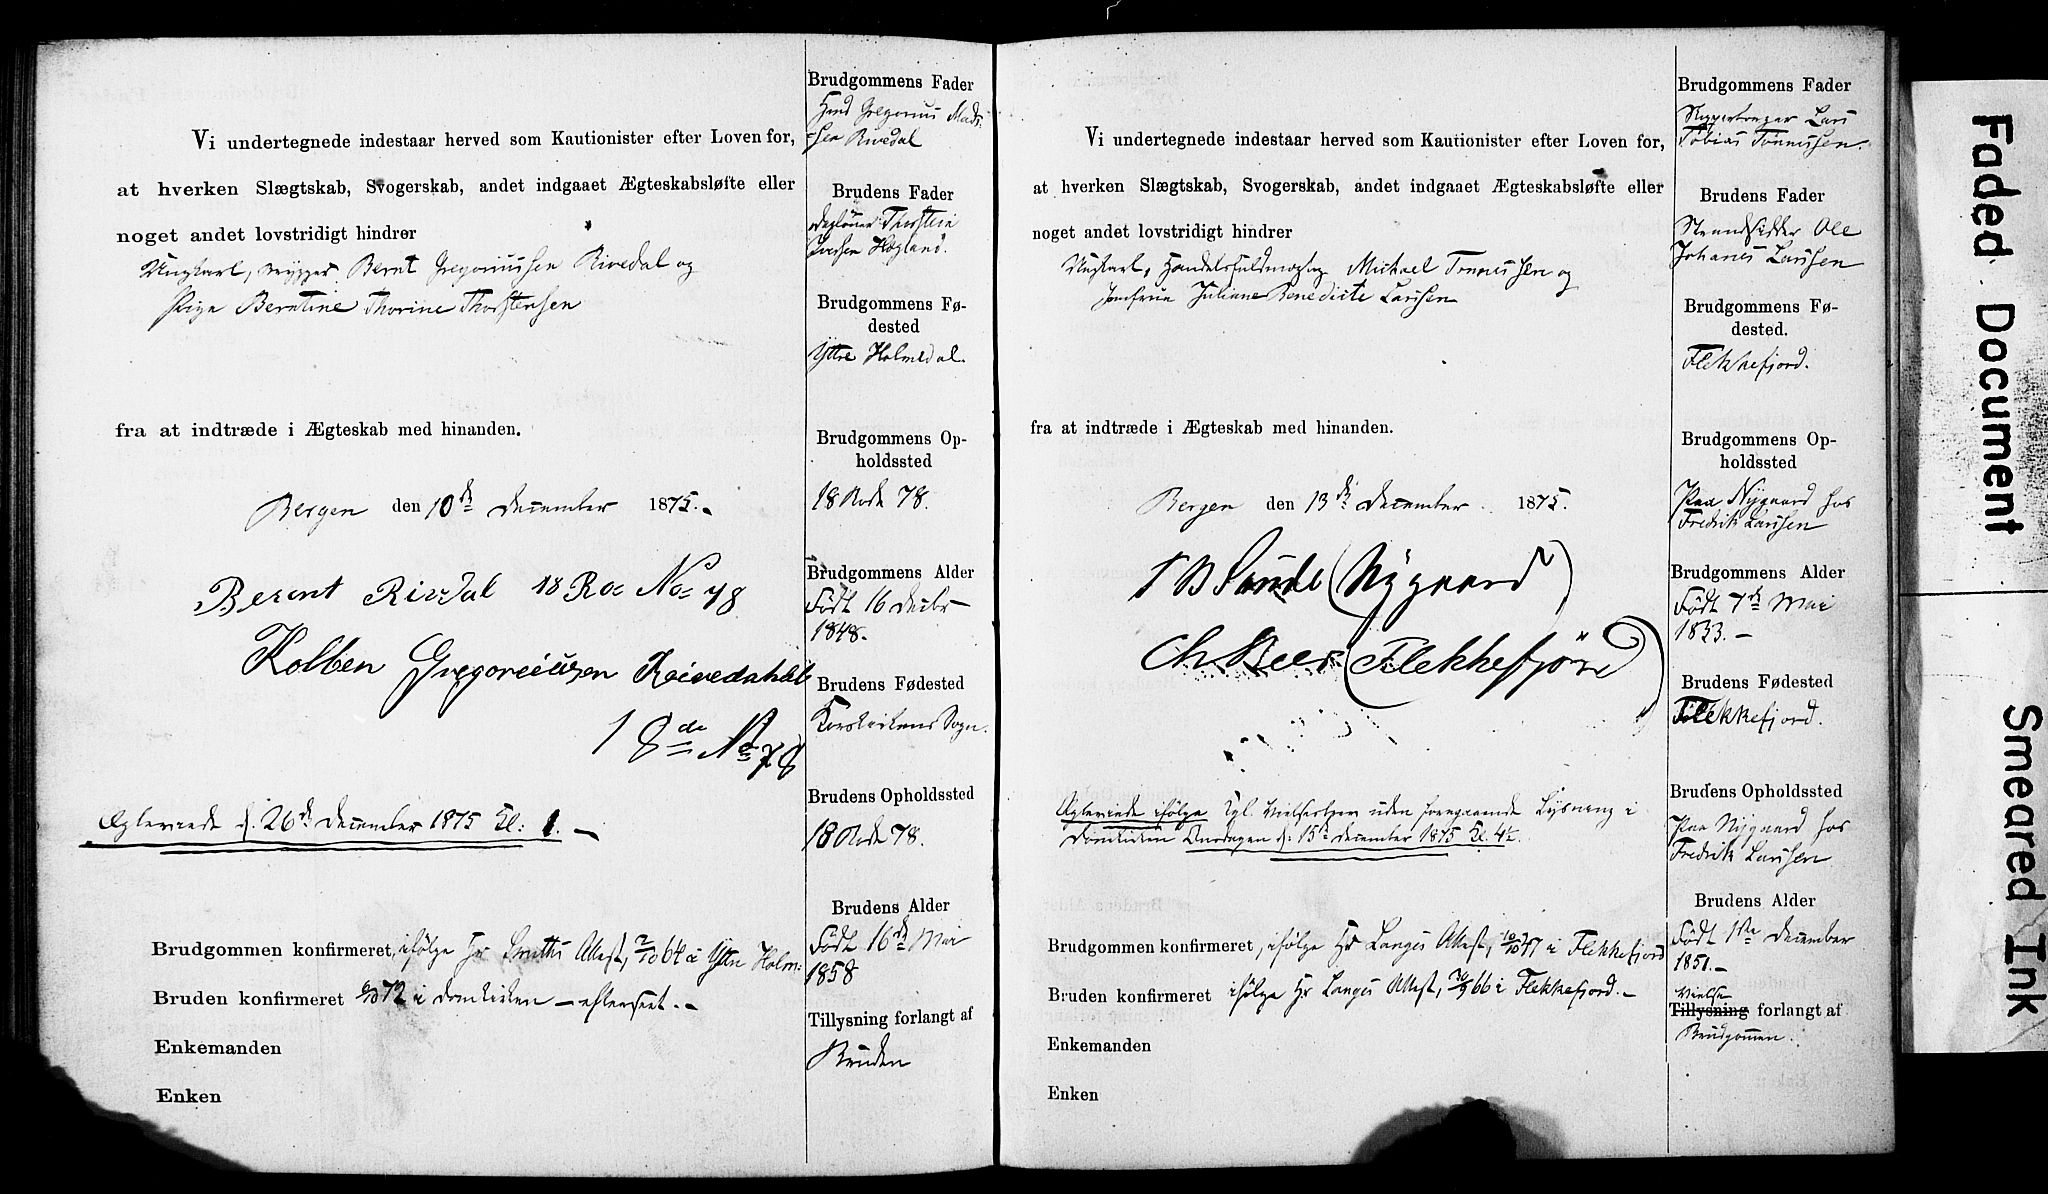 Vi undertegnede indestaar herved som Kautionister efter Loven for,
at hverken Slægtskab, Svogerskab, andet indgaaet Ægteskabsløfte eller
noget andet lovstridigt hindrer
Ungkarl, Bernt Gregoriussen Rivedal og
Pige Berntine Thorine Thorstensen
fra at indtræde i Ægteskab med hinanden.
Bergen den 10de December 1875.
Bernt Rivdal 18 Ro No 78
Kolben Gregoreiusen
18de No 78
Ægteviede d. 26de December 1875 Kl: 1.
Brudgommen konfirmeret, ifølge Hr Smiths Attest, 2/10 64 i Ytre Holm:
Bruden konfirmeret 6/10 72 i Domkirken – efterseet. –
Enkemanden
Enken
Brudgommens Fader
Gregorius Mads-
sen Rivedal
Brudens Fader
Thorstein
Iversen Hogland.
Brudgommens Fø-
dested
Ytre Holmedal.
Brudgommens Op-
holdssted
18 Rode 78.
Brudgommens Alder
Født 16 Decbr
1848.
Brudens Fødested
Korskirkens Sogn.
Brudens Opholdssted
18 Rode 78.
Brudens Alder
Født 16de Mai
1858
Tillysning forlangt af
Bruden
Vi undertegnede indestaar herved som Kautionister efter Loven for,
at hverken Slægtskab, Svogerskab, andet indgaaet Ægteskabsløfte eller
noget andet lovstridigt hindrer
Ungkarl, Handelsfuldmægtig Michael Tønnessen og
Jomfru Juliane Benedicte Larssen
fra at indtræde i Ægteskab med hinanden.
Bergen den 13de December 1875.
Sunde (Nygaard)
(Flekkefjord)
Ægteviede ifølge Kgl. uden foregaaende Lysning i
Domkirken Onsdagen d: 15de December 1875 Kl. 4½.
Brudgommen konfirmeret, ifølge Hr Langes Attest, 10/10 47 i Flekkefjord
Bruden konfirmeret ifølge Hr Langes Attest, 30/9 66 i Flekkefjord. –
Enkemanden
Enken
Brudgommens Fader
Lars
Tobias Tønnessen.
Brudens Fader
Strandsidder Ole
Johanes Larssen
Brudgommens Fø-
dested.
Flekkefjord.
Brudgommens Op-
holdssted
Paa Nygaard hos
Fredrik Larssen
Brudgommens Alder
Født 7de Mai
1833. –
Brudens Fødested
Flekkefjord.
Brudens Opholdssted
Paa Nygaard hos
Fredrik Larssen
Brudens Alder
Født 1ste December
1851. –
Vielse
Tillysning forlangt af
Brudgommen.
Faded Document
Smeared Ink